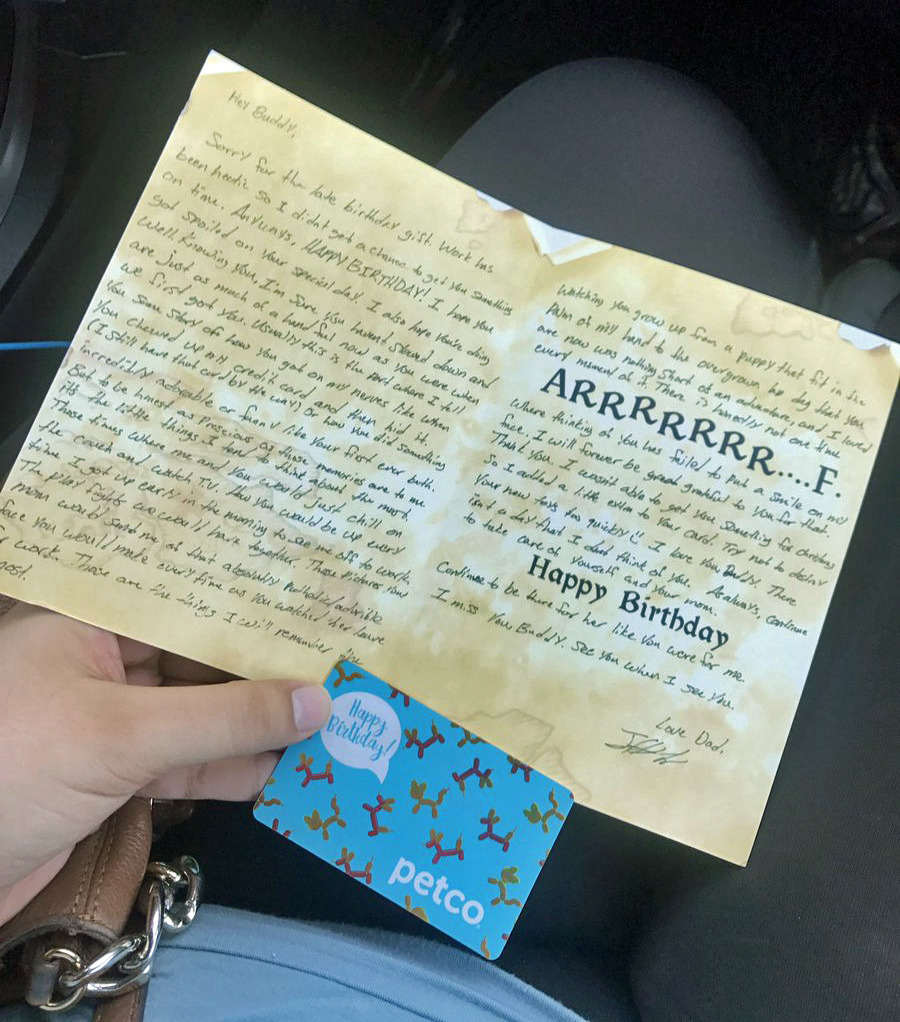 Hey Buddy,
Sorry for the late birthday gift. Work has
been hectic so I didnt get a chance to get you something
on time. Anyways, HAPPY BIRTHDAY! I hope you
got spoiled on your special day. I also hope you're doing
well. Knowing you, I'm sure you havent slowed down and
are just as much of a handful now as you were when
we first got you. Usually this is the part where I tell
you some story of how you got on my nerves like when
you chewed up my credit card and then hid it.
(I still have that card by the way) or how you did something
incredibly adorable or funny like your first ever bath.
But to be honest as precious as those memories are to me
its the little things I tend to think about the most.
Those times where me and you would just chill on
the couch and watch TV. How you would be up every
time I got up early in the morning to see me off to work.
The play fights we would have together. Those pictures your
mom would send me of that absolutely pathetic/adorable
face you would make every time as you watched her leave
for work. Those are the things I will remember the
most.
Watching you grow up from a puppy that fit in the
palm of my hand to the overgrown lap dog that you
are now was nothing short of an adventure, and I loved
every moment of it. There is honestly not one time
ARRRRRRR....F.
Where thinking of you has failed to put a smile on my
face. I will forever be great grateful to you for that.
Thank you. I wasnt able to get you something for christmas
so I added a little extra to your card. Try not to destroy
your new toys too quickly I love you, Buddy. There
isnt a day that I dont think of you. Continue
to take care of yourself and your mom.
Happy Birthday
Continue to be there for her like you were for me.
I miss you Buddy. See you when I see you.
Love Dad,
Happy
Birthday!
petco